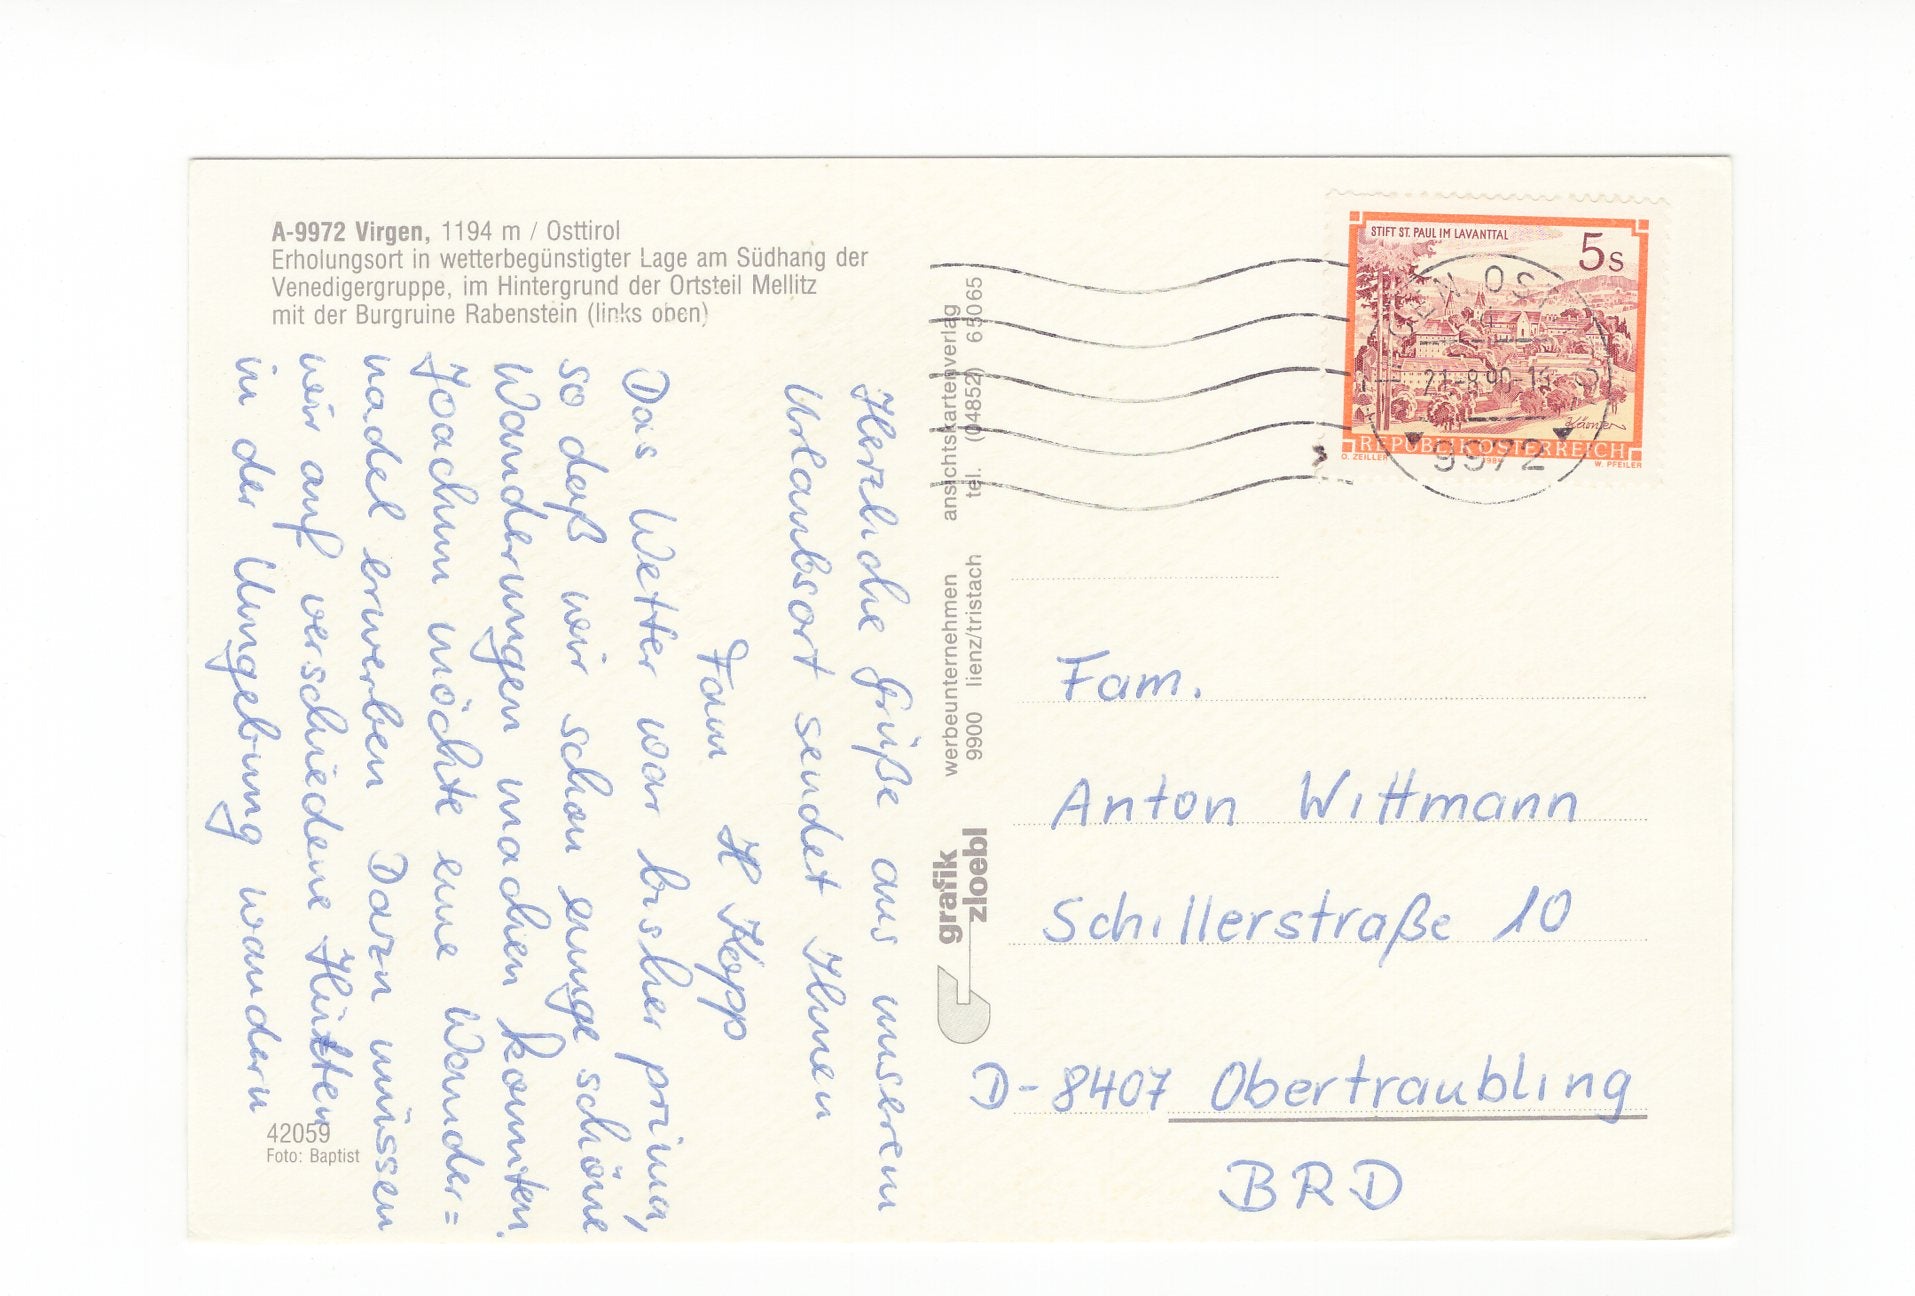 A-9972 Virgen, 1194 m / Osttirol
Erholungsort in wetterbegünstigter Lage am Südhang der
Venedigergruppe, im Hintergrund der Ortsteil Mellitz
mit der Burgruine Rabenstein (links oben)
Herzliche Grüße aus unserem
Urlaubsort sendet Ihnen
Fam H Kopp
Das Wetter war bisher prima,
so daß wir schon einige schöne
Wanderungen machen konnten.
Joachim möchte eine Wander=
nadel erwerben Dazu müssen
wir auf verschiedene Hütten
in der Umgebung wandern
42059
Foto: Baptist
grafik
zloebl
werbeunternehmen ansichtskartenverlag
9900 lienz/tristach tel. (04852) 65065
STIFT ST. PAUL IM LAVANTTAL
5s
REPUBLIK ÖSTERREICH
O. ZEILLER
W. PFEILER
9972
Fam.
Anton Wittmann
Schillerstraße 10
D-8407 Obertraubling
BRD